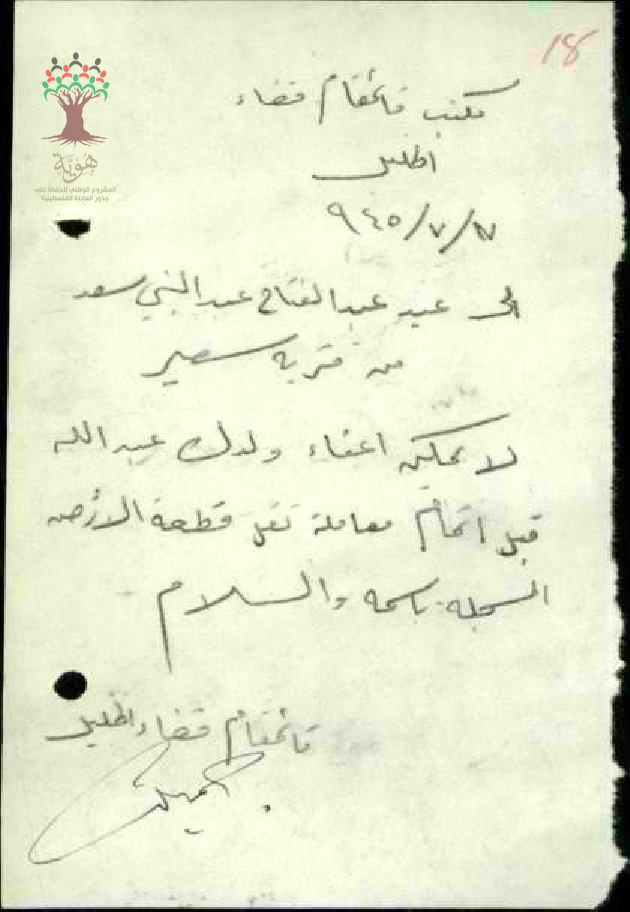 18
هوية
المشروع الوطني للحفاظ على
جذور العائلة الفلسطينية
مكتب قائمقام قضاء
الخليل
٩٤٥/٧/١٧
الى عبد عبد الفتاح عبد النبي سعد
من قرية سعير
لا يمكن اعفاء ولدك عبد الله
قبل اتمام معاملة نقل قطعة الأرض
المسجلة باسمه والسلام
قائمقام قضاء الخليل